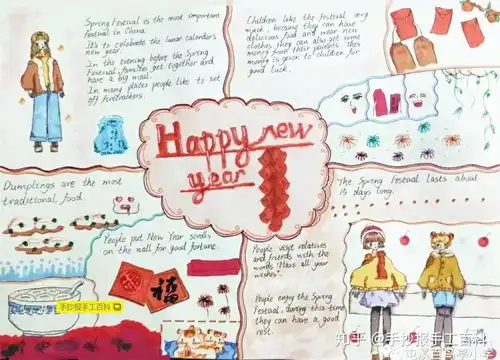 Spring Festival is the most important
festival in China.
It's to celebrate the lunar calendar's
new year.
In the evening before the Spring
Festival families get together and
have a big meal.
In many places people like to set
off firecrackers.
Children like the festival very
much, because they can have
delicious food and wear new
clothes, they can also get some
money from their parents. This
money is given to children for
good luck.
Happy new
year
Dumplings are the most
traditional food.
The Spring Festival lasts about
15 days long.
People put New Year scrolls
on the wall for good fortune.
福
People visit relatives
and friends with the
words "Have all your
wishes".
People enjoy the Spring
Festival, during this time
they can have a good
rest.
手抄报手工百科
知乎 @手抄报手工百科